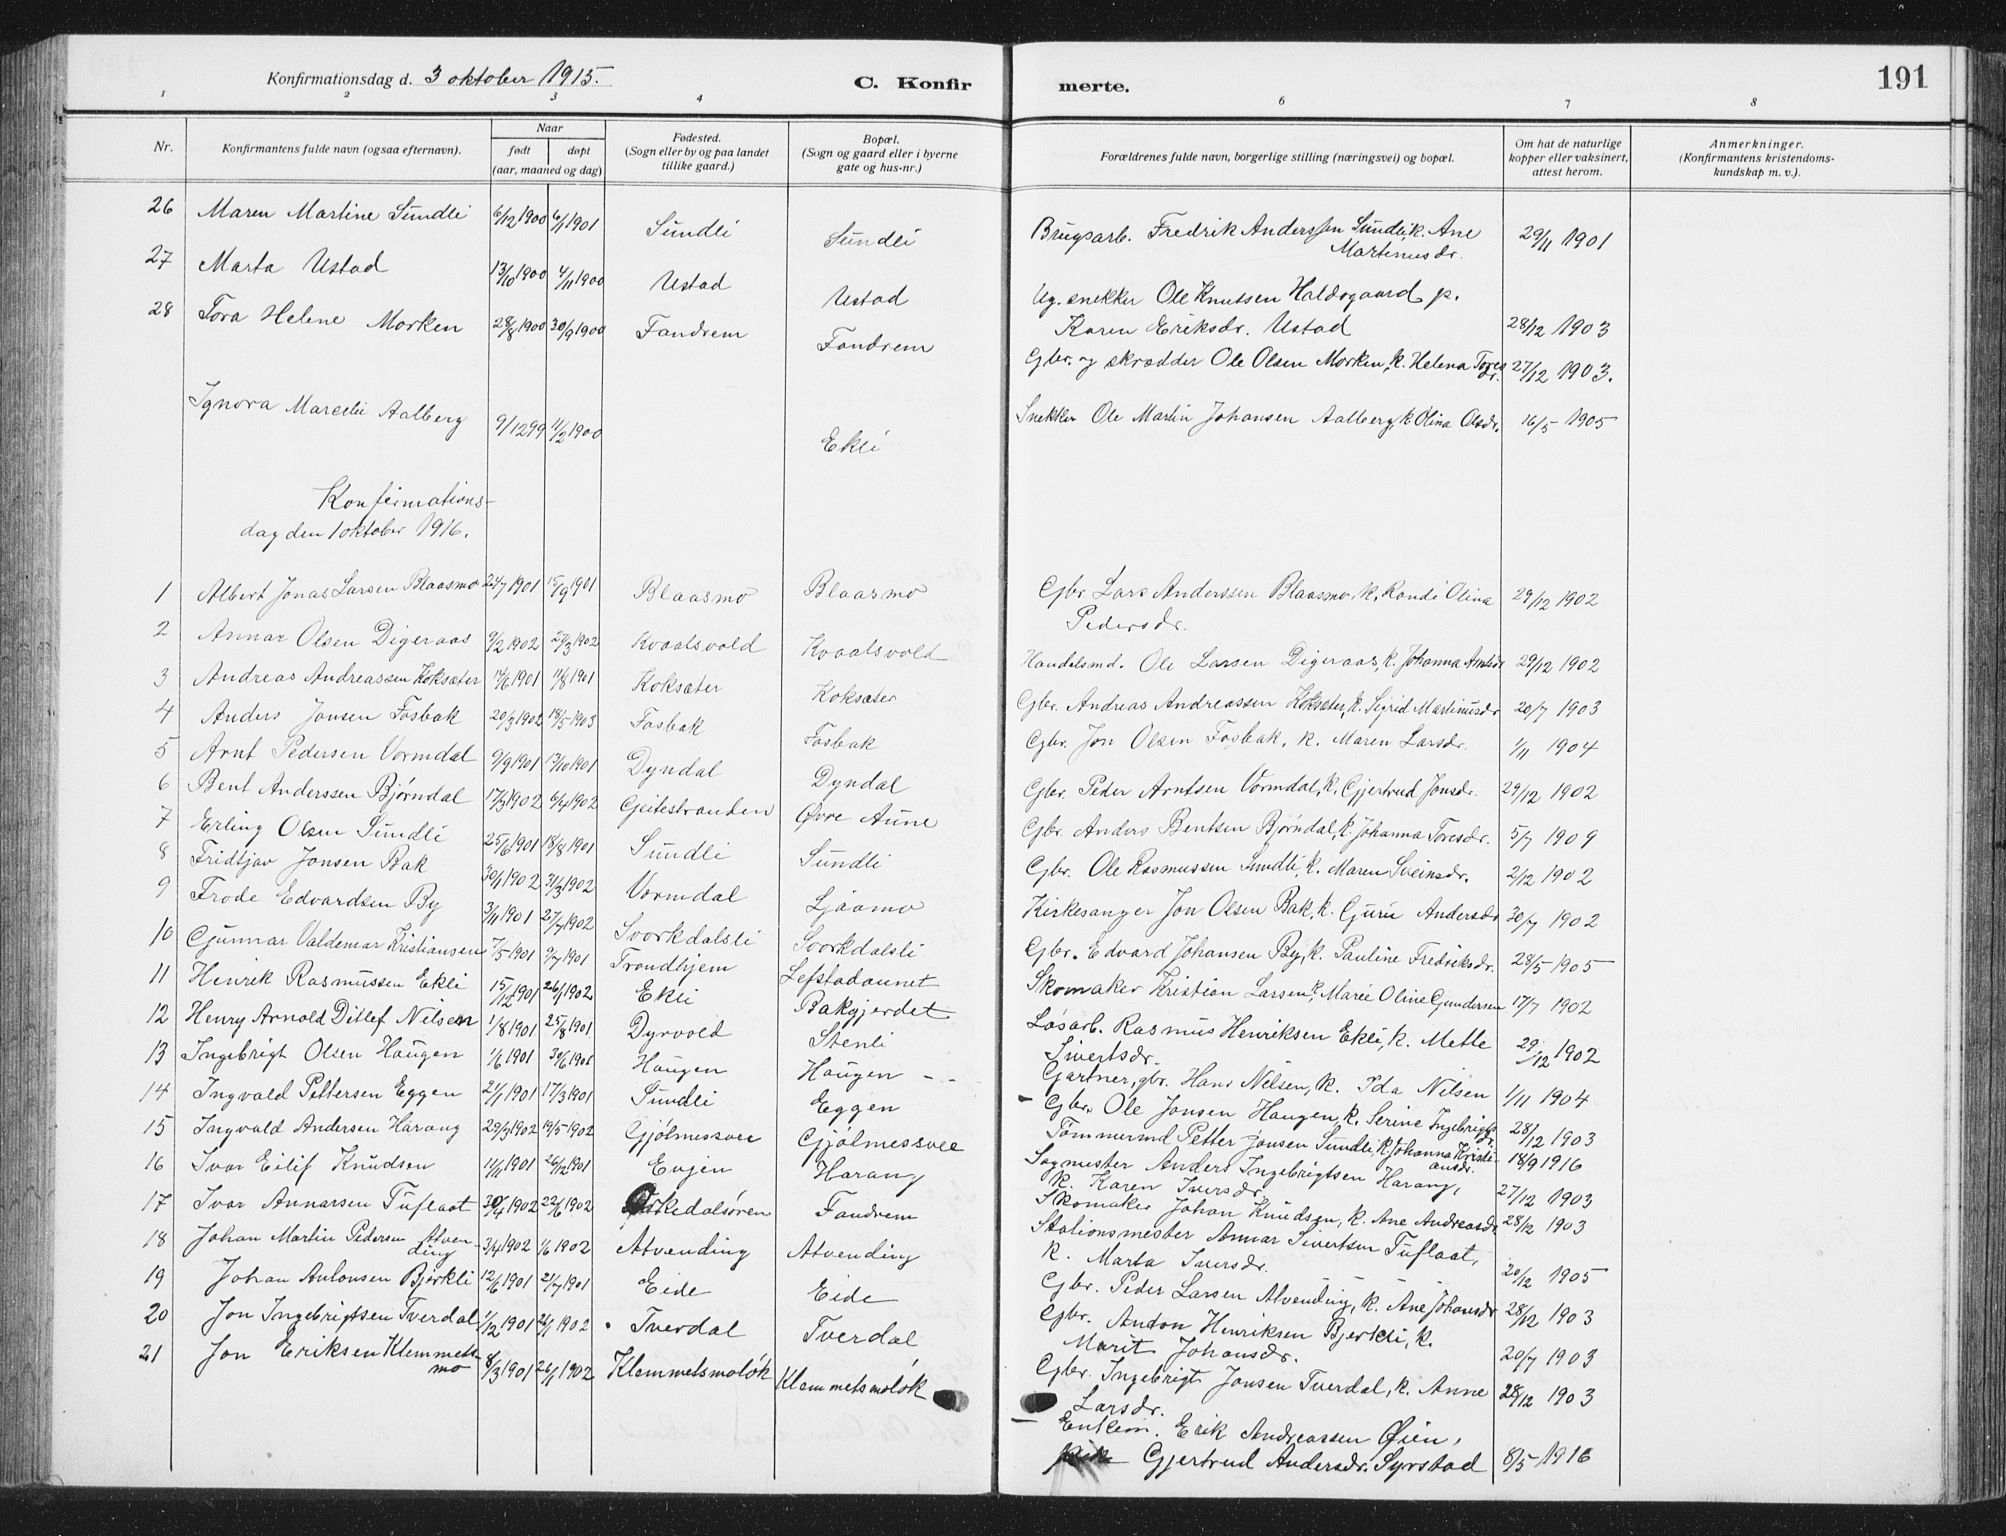 Konfirmationsdag d. 3 oktober 1915.
C. Konfir
merte.
191
1 2 3 4 6 7 8
Nr.
Konfirmantens fulde navn (ogsaa efternavn).
Naar
født døpt
(aar, maaned og dag)
Fødested.
(Sogn eller by og paa landet
tillike gaard.)
Bopæl.
(Sogn og gaard eller i byerne
gate og hus-nr.)
Forældrenes fulde navn, borgerlige stilling (næringsvei) og bopæl.
Om hat de naturlige
kopper eller vaksinert,
attest herom.
Anmerkninger.
(Konfirmantens kristendoms-
kundskap m. v.).
26 Maren Martine Sundli 6/12 1900 6/1 1901 Sundli Sundli Brugsarb. Fredrik Anderssen Sundli, k. Ane 29/11 1901
Martinusdr.
27 Marta Ustad 13/10 1900 4/11 1900 Ustad Ustad Ug. snekker Ole Knutsen Haldogaard p.
Karen Eriksdr. Ustad 28/12 1903
28 Tora Helene Morken 28/8 1900 30/9 1900 Fandrem Fandrem Gbr. og skrædder Ole Olsen Morken, k. Helena Toresdr. 27/12 1903.
Ignora Marcelie Aalberg 9/12 99 11/2 1900 Ekli Snekker Ole Martin Johansen Aalberg, k. Olina Olsdr. 16/5 1905
Konfirmations-
dag den 1 oktober 1916.
1 Albert Jonas Larsen Blaasmo 24/7 1901 15/9 1901 Blaasmo Blaasmo Gbr. Lars Anderssen Blaasmo, k. Randi Olina 29/12 1902
Pedersdr.
2 Annar Olsen Digeraas 9/2 1902 27/3 1902 Kvaalsvold Kvaalsvold Handelsmd. Ole Larsen Digeraas, k. Johanna Arntsdr. 29/12 1902
3 Andreas Andreassen Koksæter 14/6 1901 11/8 1901 Koksæter Koksæter Gbr. Andreas Andreassen Koksæter, k. Sigrid Martinusdr. 20/7 1903
4 Anders Jonsen Fosbak 20/3 1902 18/5 1903 Fosbak Fosbak Gbr. Jon Olsen Fosbak, k. Maren Larsdr. 1/11 1904
5 Arnt Pedersen Vormdal 9/9 1901 13/10 1901 Dyndal Dyndal Gbr. Peder Arntsen Vormdal, k. Gjertrud Jonsdr. 29/12 1902
6 Bent Anderssen Bjørndal 17/3 1902 6/4 1902 Geitestranden Øvre Aune Gbr. Anders Bentsen Bjørndal, k. Johanna Toresdr. 5/7 1909
7 Erling Olsen Sundli 25/6 1901 18/8 1901 Sundli Sundli Gbr. Ole Rasmussen Sundli, k. Maren Sveinsdr. 2/12 1902
8 Fridtjav Jonsen Bak 30/1 1902 31/3 1902 Vormdal Ljåamo Kirkesanger Jon Olsen Bak, k. Guru Andersdr. 30/7 1902
9 Frode Edvardsen By 3/11 1901 27/7 1902 Svorkdalsli Svorkdalsli Gbr. Edvard Johansen By, k. Pauline Fredriksdr. 28/5 1905
10 Gunnar Valdemar Kristiansen 7/5 1901 9/7 1901 Trondhjem Lefstadaunet Skomaker Kristian Larsen, k. Marie Oline Gundersen 17/7 1902
11 Henrik Rasmussen Ekli 15/12 1901 26/1 1902 Ekli Bakgjerdet Løsarb. Rasmus Henriksen Ekli, k. Mette 29/12 1902
Sivertsdr.
12 Henry Arnold Ditlef Nilsen 1/8 1901 25/8 1901 Dyrvold Stenli Gartner, gbr. Hans Nilsen, k. Ida Nilsen 1/11 1904
13 Ingebrigt Olsen Haugen 1/6 1901 30/6 1901 Haugen Haugen - - Gbr. Ole Jonsen Haugen, k. Serine Ingebrigtsdr. 28/12 1903
14 Ingvald Pettersen Eggen 21/1 1901 17/3 1901 Sundli Eggen Tømmermd Petter Jonsen Sundli, k. Johanna Kristiansdr. 18/9 1916
15 Ingvald Andersen Harang 29/3 1902 19/5 1902 Gjølmessvee Gjølmessvee Sagmester Anders Ingebrigtsen Harang,
k. Karen Iversdr. 27/12 1903
16 Ivar Eilif Knudsen 11/11 1901 26/12 1901 Evjen Harang Skomaker Johan Knudsen, k. Ane Andreasdr. 28/12 1903
17 Ivar Annarsen Tuflaat 30/4 1902 22/6 1902 Orkedalsøren Fandrem Stationsmester Annar Sivertsen Tuflaat,
k. Marta Iversdr. 20/12 1905
18 Johan Martin Pedersen Atvending 3/4 1902 1/6 1902 Atvending Atvending Gbr. Peder Larsen Atvending, k. Ane Johansdr. 28/12 1903
19 Johan Antonsen Bjørkli 12/6 1901 21/7 1901 Eide Eide Gbr. Anton Henriksen Bjerkli, k.
Marit Johansdr. 20/7 1903
20 Jon Ingebrigtsen Tverdal 1/12 1901 26/1 1902 Tverdal Tverdal Gbr. Ingebrigt Jonsen Tverdal, k. Anne 28/12 1903
Larsdr.
21 Jon Eriksen Klemmetsmo 8/3 1901 26/1 1902 Klemmetsmoløk Klemmetsmoløk Enkem. Erik Andreassen Øien,
Gjertrud Andersdr. Syrstad 8/5 1916